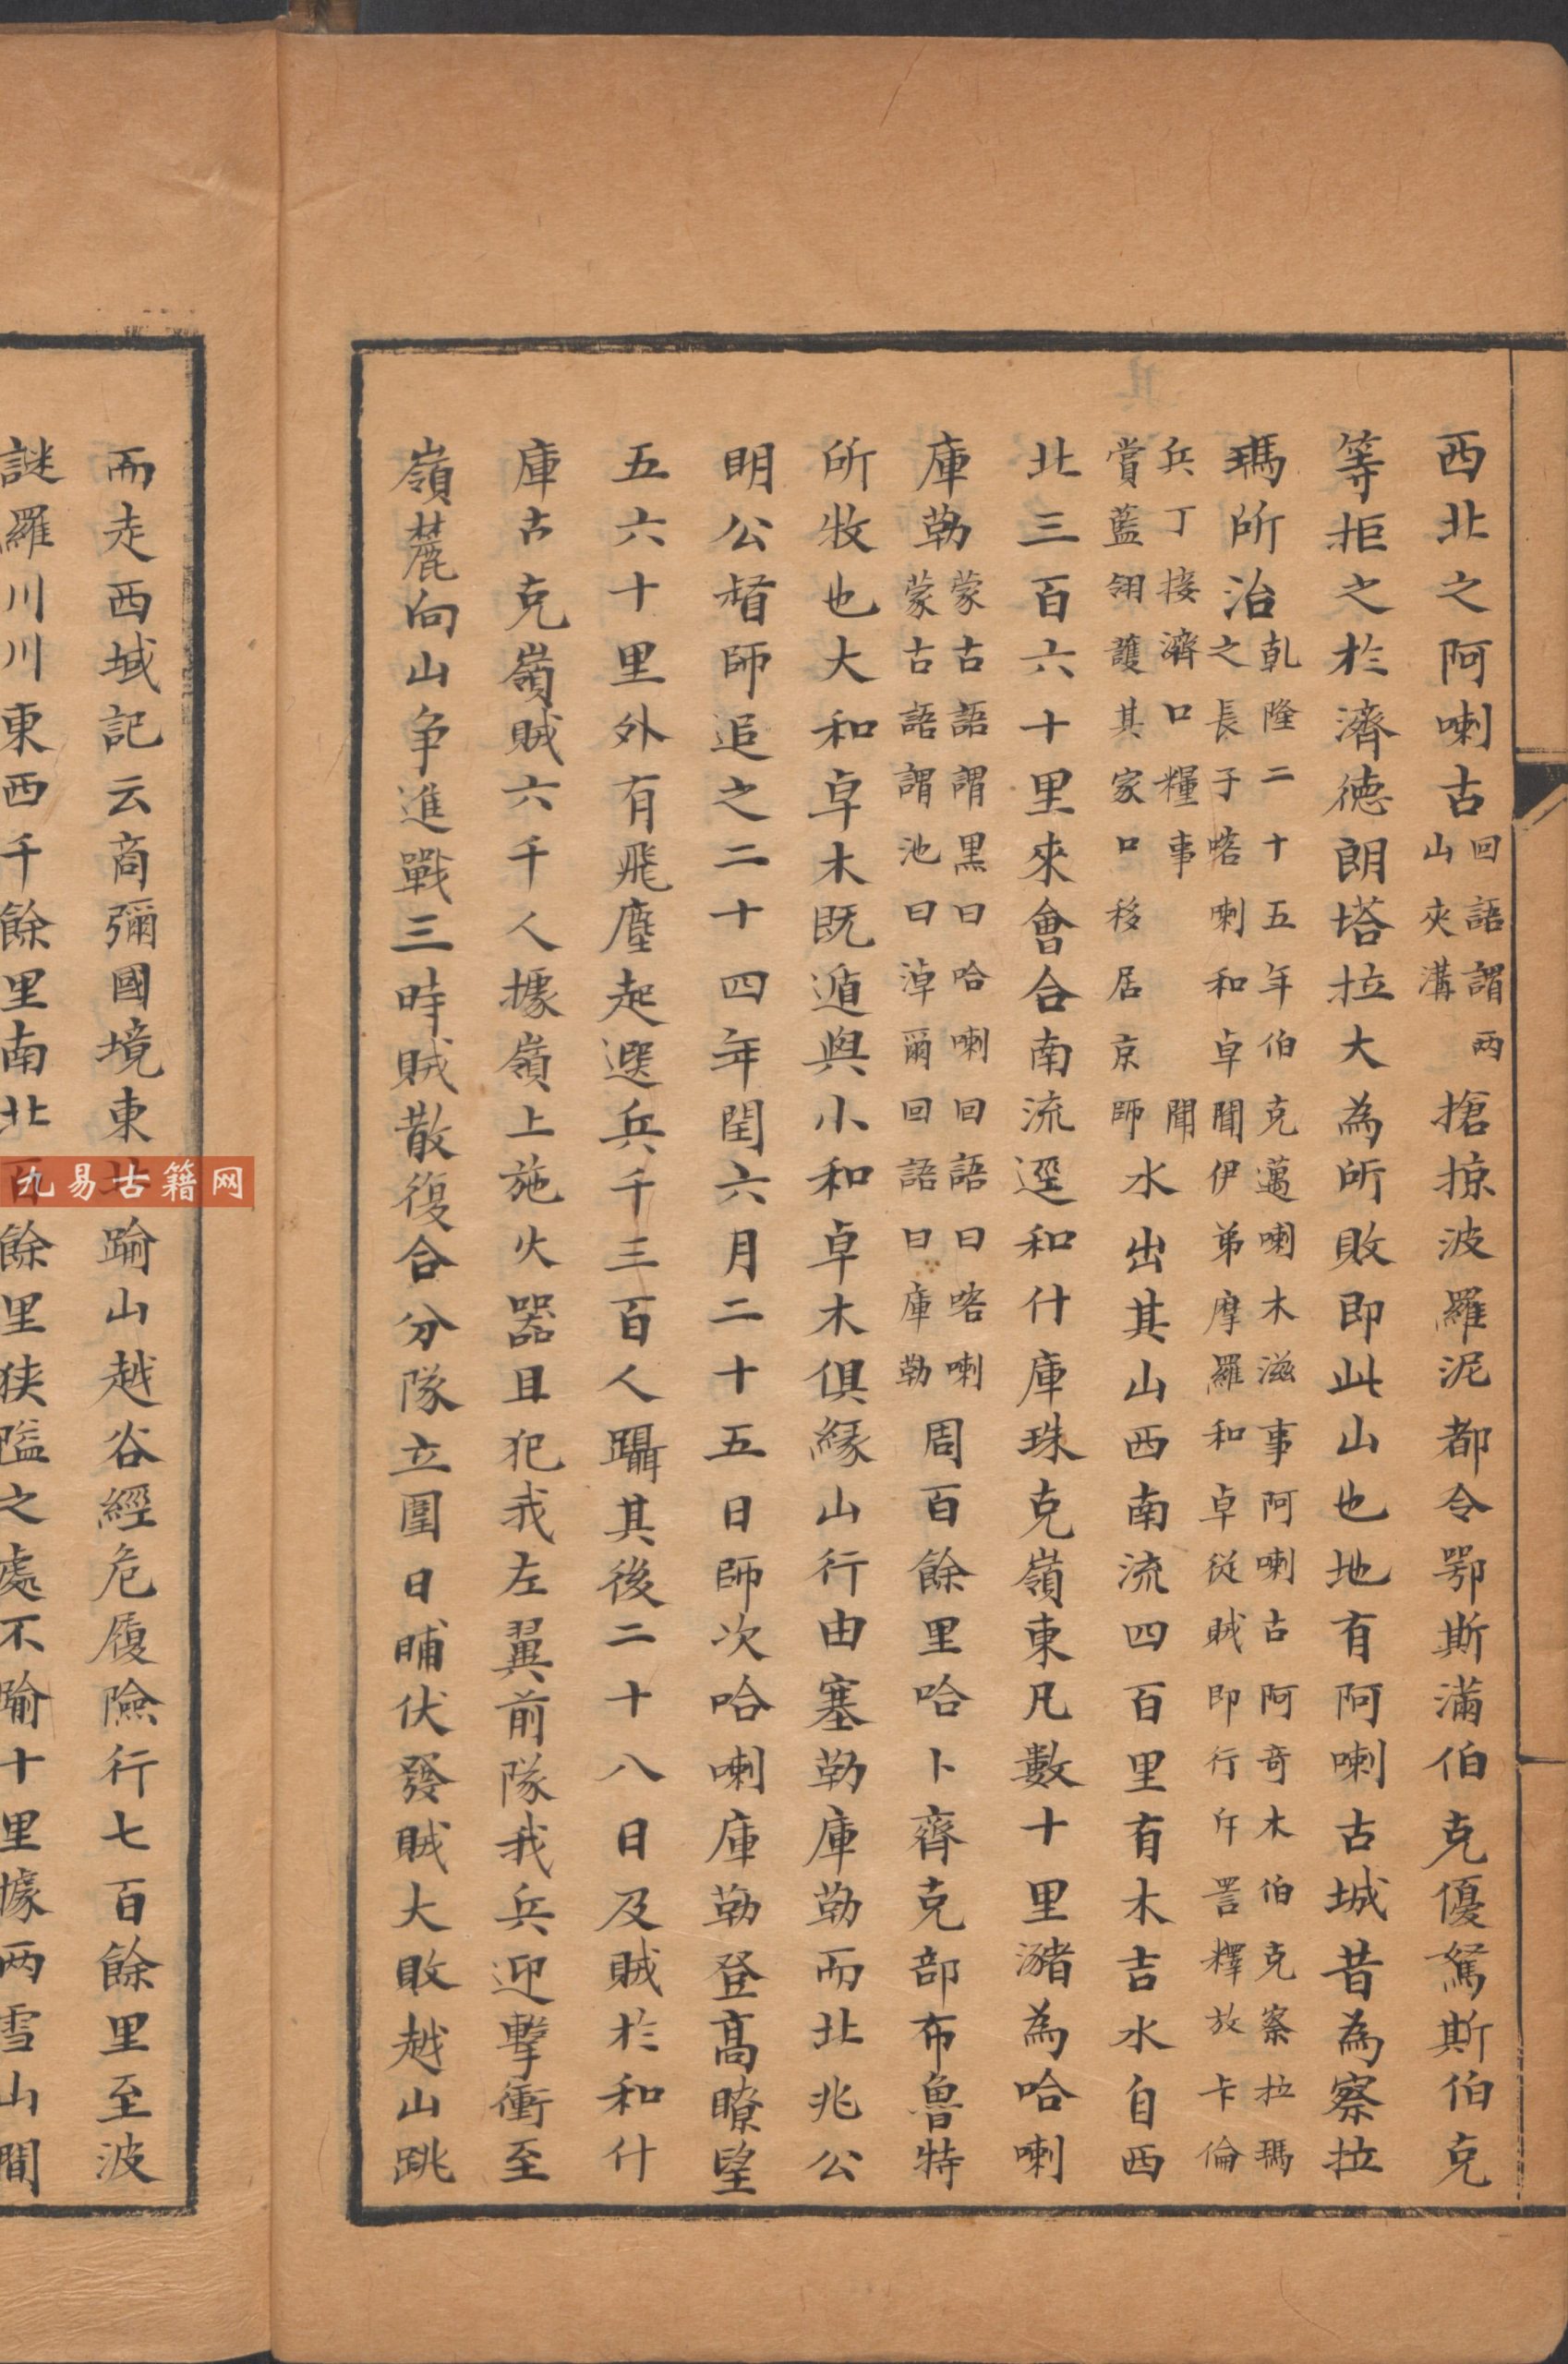 西北之阿喇古回語謂兩山夾溝搶掠波羅泥都令鄂斯滿伯克優駑斯伯克
等拒之於濟德朗塔拉大為所敗即此山也地有阿喇古城昔為察拉
瑪所治乾隆二十五年伯克邁喇木滋事阿喇古阿奇木伯克察拉瑪之長子喀喇和卓聞伊弟摩羅和卓從賊即行斥詈釋放卡倫
兵丁接濟口糧事聞賞藍翎護其家口移居京師水出其山西南流四百里有木吉水自西
北三百六十里來會合南流逕和什庫珠克嶺東凡數十里瀦為哈喇
庫勒蒙古語謂黑曰哈喇回語曰喀喇蒙古語謂池曰淖爾回語曰庫勒周百餘里哈卜齊克部布魯特
所牧也大和卓木既遁與小和卓木俱緣山行由塞勒庫勒而北兆公
明公督師追之二十四年閏六月二十五日師次哈喇庫勒登高瞭望
五六十里外有飛塵起選兵千三百人躡其後二十八日及賊於和什
庫古克嶺賊六千人據嶺上施火器且犯我左翼前隊我兵迎擊衝至
嶺麓向山争進戰三時賊散復合分隊立圍日晡伏發賊大敗越山跳
而走西域記云商彌國境東北踰山越谷經危履險行七百餘里至波
謎羅川川東西千餘里南北百餘里狹隘之處不踰十里據兩雪山間
九易古籍网